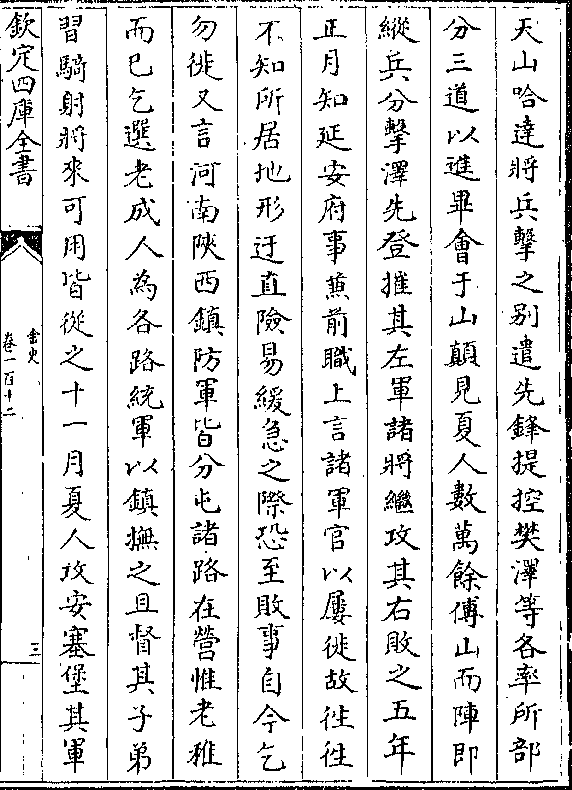 天山哈達將兵擊之别遣先鋒提控樊澤等各率所部
分三道以進畢會于山顛見夏人數萬餘傅山而陣即
縱兵分擊澤先登摧其左軍諸將繼攻其右敗之五年
正月知延安府事兼前職上言諸軍官以屢徙故徃徃
不知所居地形迂直險易緩急之際恐至敗事自今乞
勿徙又言河南陜西鎮防軍皆分屯諸路在營惟老稚
而巳乞選老成人為各路統軍以鎮撫之且督其子弟
習騎射將來可用皆從之十一月夏人攻安塞堡其軍
欽定四庫全書
金史
卷一百十二
三